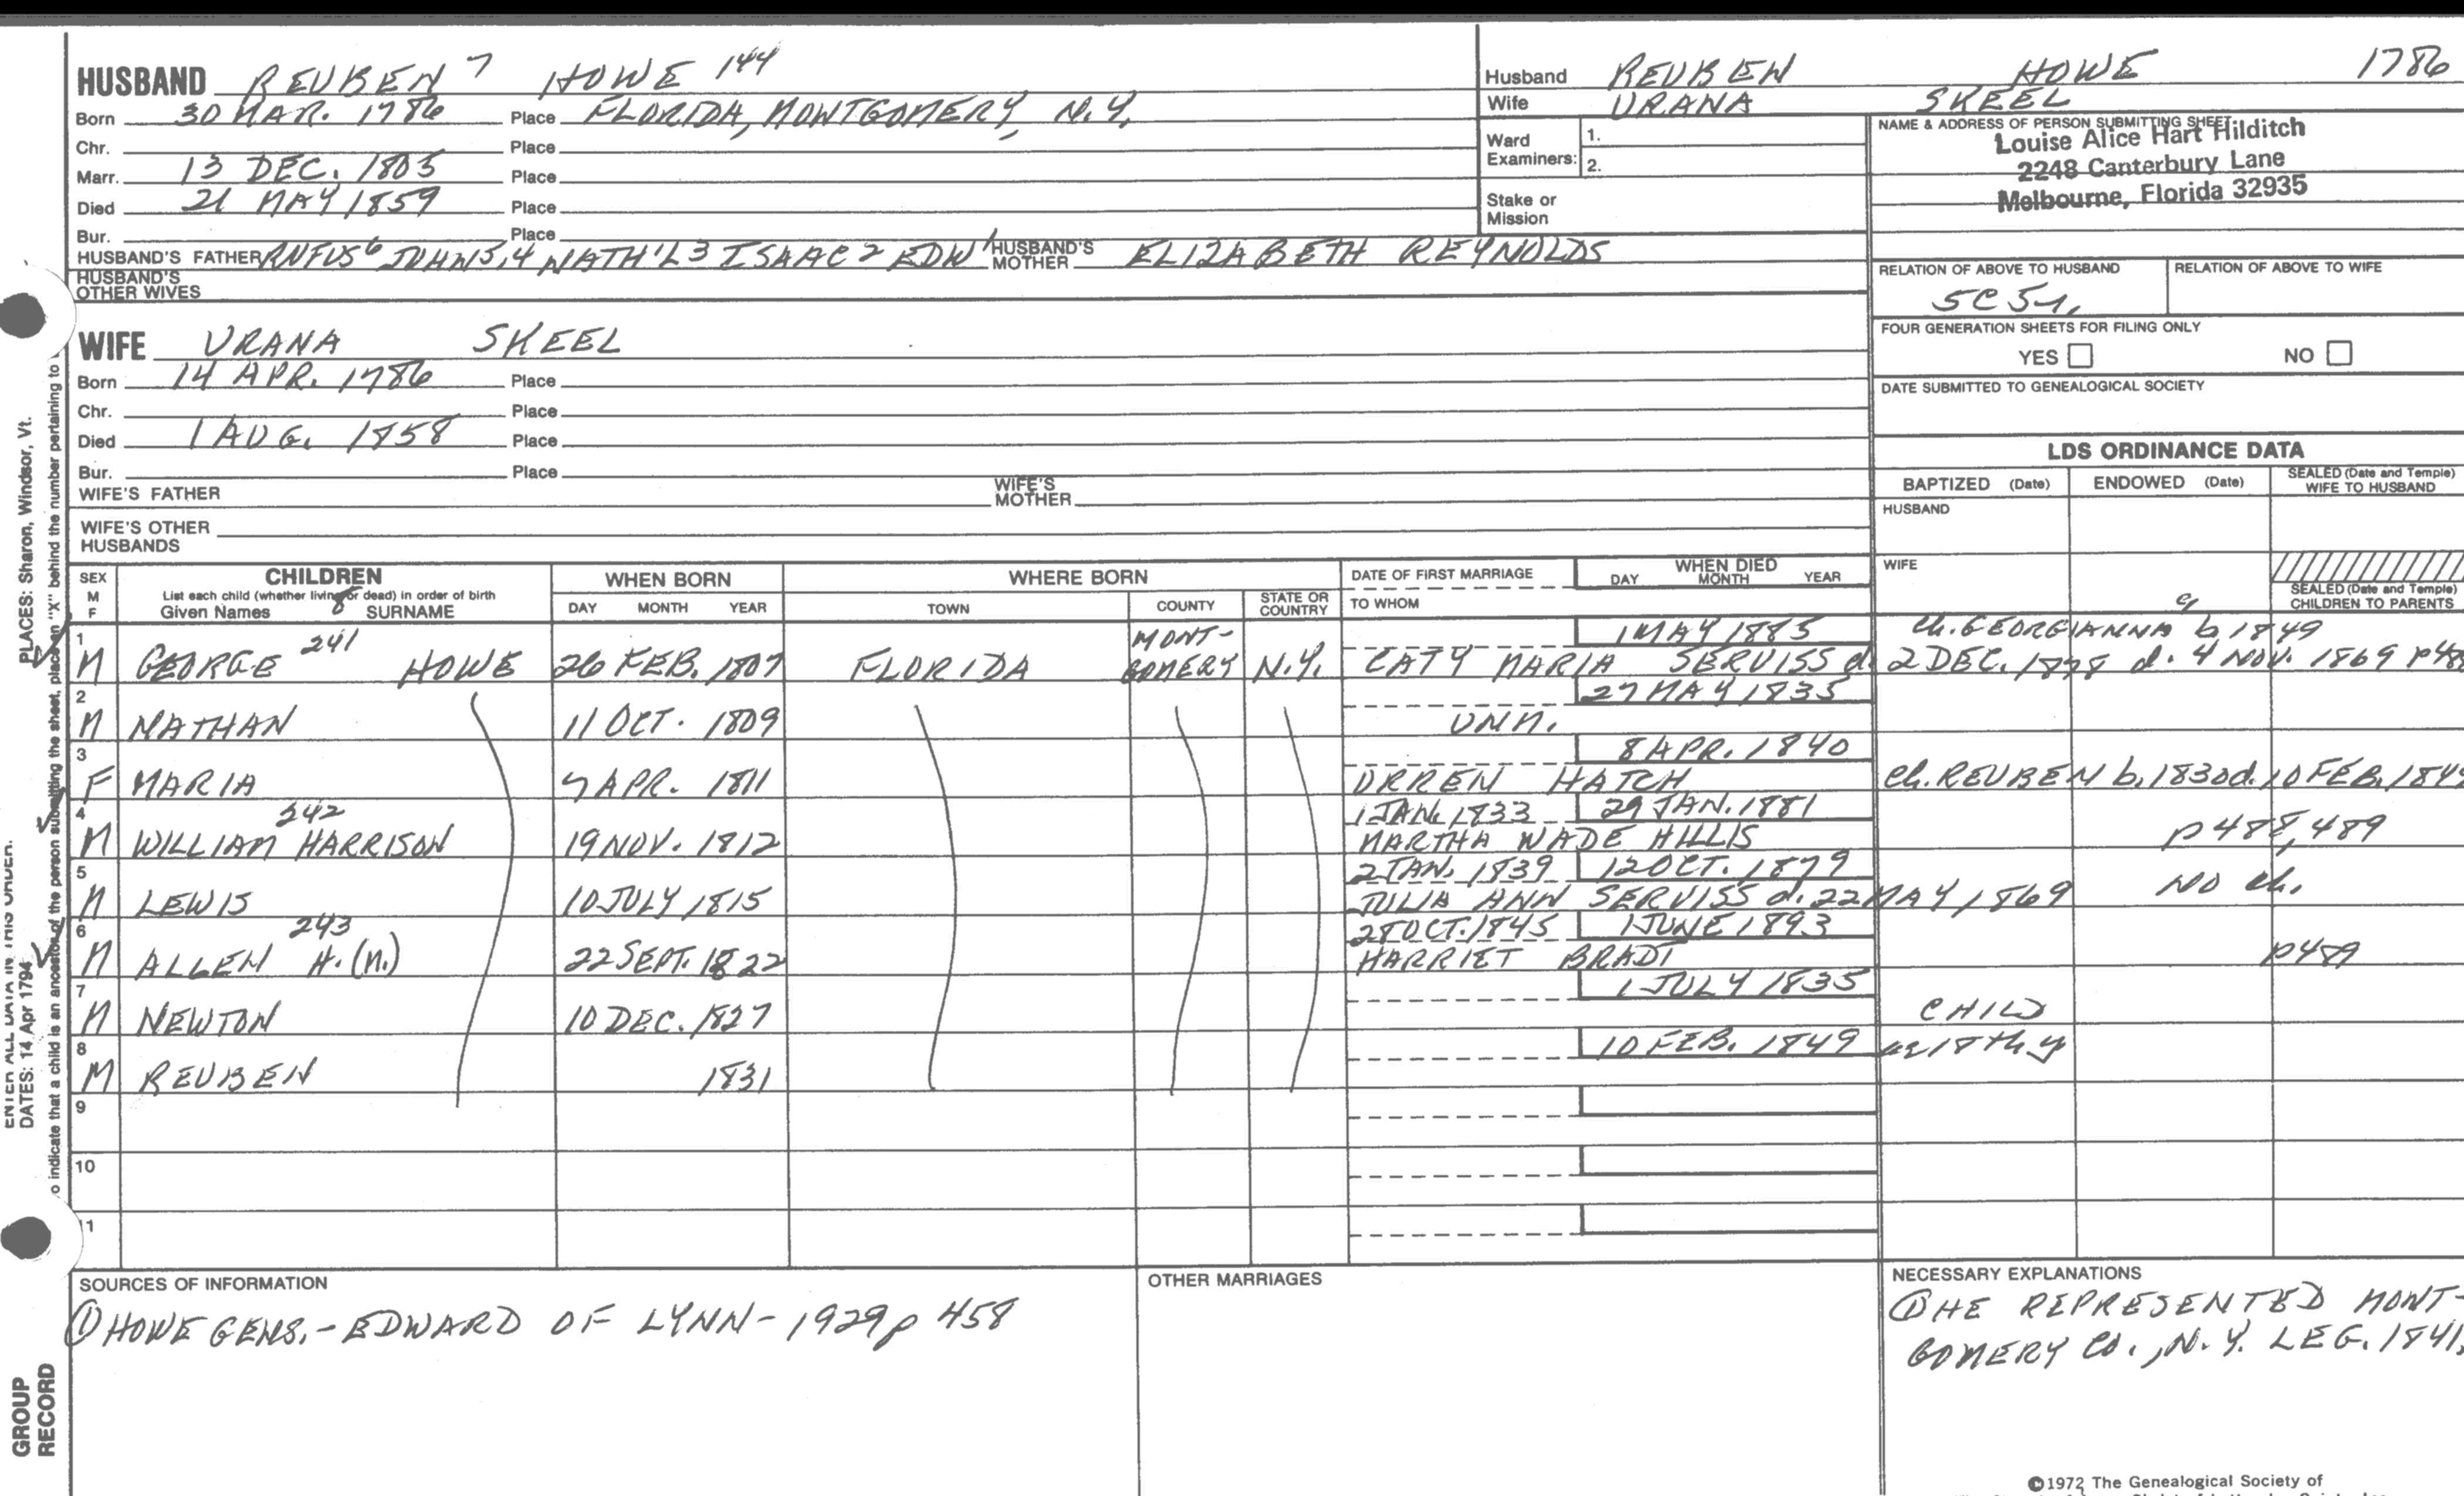 HUSBAND REUBEN 7 HOWE 144
Born 30 MAR. 1786 Place FLORIDA, MONTGOMERY, N.Y.
Chr. Place
Marr. 13 DEC. 1805 Place
Died 21 MAY 1859 Place
Bur. Place
HUSBAND'S FATHER RUFUS 6 JOHN 5,4 NATH'L 3 ISAAC 2 EDW 1 HUSBAND'S MOTHER ELIZABETH REYNOLDS
HUSBAND'S OTHER WIVES
WIFE URANA SKEEL
Born 14 APR. 1786 Place
Chr. Place
Died 1 AUG. 1858 Place
Bur. Place
WIFE'S FATHER WIFE'S MOTHER
WIFE'S OTHER HUSBANDS
Husband REUBEN HOWE 1786
Wife URANA SKEEL
Ward Examiners: 1. 2.
Stake or Mission
NAME & ADDRESS OF PERSON SUBMITTING SHEET
Louise Alice Hart Hilditch
2248 Canterbury Lane
Melbourne, Florida 32935
RELATION OF ABOVE TO HUSBAND RELATION OF ABOVE TO WIFE
FOUR GENERATION SHEETS FOR FILING ONLY
YES NO
DATE SUBMITTED TO GENEALOGICAL SOCIETY
LDS ORDINANCE DATA
BAPTIZED (Date) ENDOWED (Date) SEALED (Date and Temple) WIFE TO HUSBAND
HUSBAND
WIFE
SEALED (Date and Temple) CHILDREN TO PARENTS
SEX M F CHILDREN WHEN BORN WHERE BORN DATE OF FIRST MARRIAGE WHEN DIED
List each child (whether living or dead) in order of birth
Given Names 8 SURNAME DAY MONTH YEAR TOWN COUNTY STATE OR COUNTRY TO WHOM DAY MONTH YEAR
1 241 MONT- 1 MAY 1885 ch. GEORGIANNA b 1849
M GEORGE HOWE 26 FEB. 1807 FLORIDA GOMERY N.Y. CATY MARIA SERVISS d. 2 DEC. 1878 d. 4 NOV. 1869
2 27 MAY 1835
M NATHAN 11 OCT. 1809 UNM.
3 8 APR. 1840
F MARIA 7 APR. 1811 ORREN HATCH ch. REUBEN b. 1830 d. 10 FEB.
4 242 1 JAN. 1833 29 JAN. 1881
M WILLIAM HARRISON 19 NOV. 1812 MARTHA WADE HILLIS p 488, 489
5 2 JAN. 1839 12 OCT. 1879
M LEWIS 10 JULY 1815 JULIA ANN SERVISS d. 22 MAY 1869 NO ch.
6 243 28 OCT. 1845 1 JUNE 1893
M ALLEN H. (M.) 22 SEPT. 1822 HARRIET BRADT p489
7 1 JULY 1835
M NEWTON 10 DEC. 1827 CHILD
8 10 FEB. 1849
M REUBEN 1831
9
10
11
SOURCES OF INFORMATION
① HOWE GENS. - EDWARD OF LYNN - 1929 p 458
OTHER MARRIAGES
NECESSARY EXPLANATIONS
① HE REPRESENTED MONT-
GOMERY CO., N.Y. LEG. 1841
©1972 The Genealogical Society of
PLACES: Sharon, Windsor, Vt.
ENTER ALL DATA IN THIS ORDER:
DATES: 14 Apr 1794
o indicate that a child is an ancestor of the person submitting the sheet, place an "X" behind the number pertaining to
GROUP
RECORD